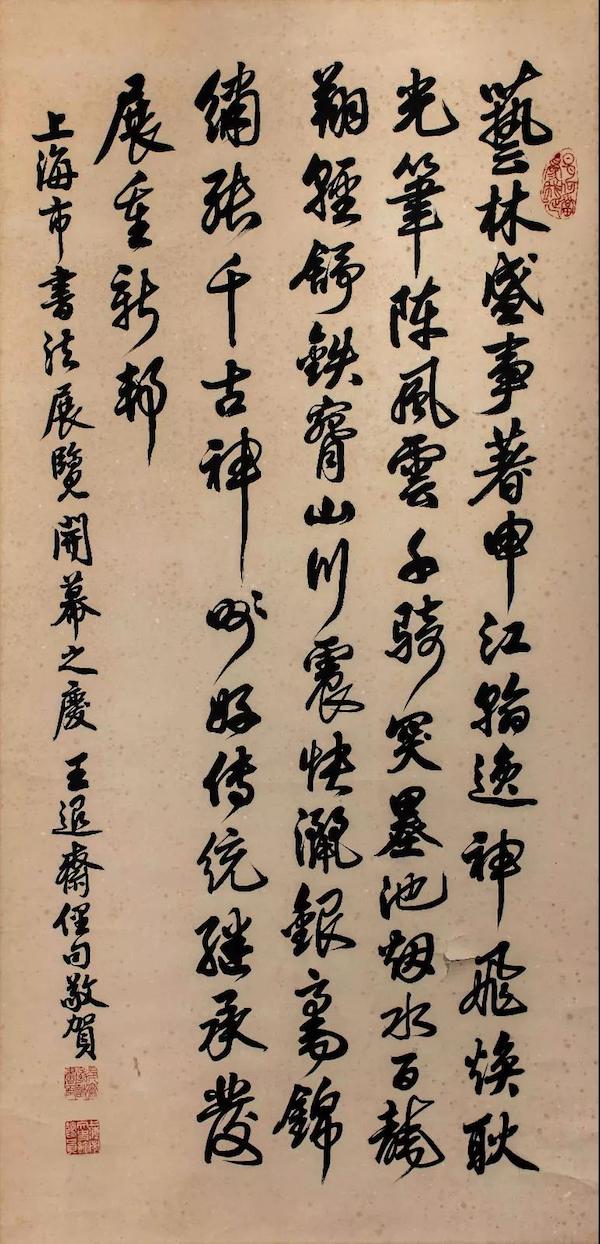 藝林盛事著申江翰逸神飛煥耿
光筆陣風雲千騎突墨池烟水百龍
翔輕舒鐵腕山川震快灑銀毫錦
繡張千古神州好傳統繼承發
展重新邦
上海市書法展覽開幕之慶 王退齋俚句敬賀